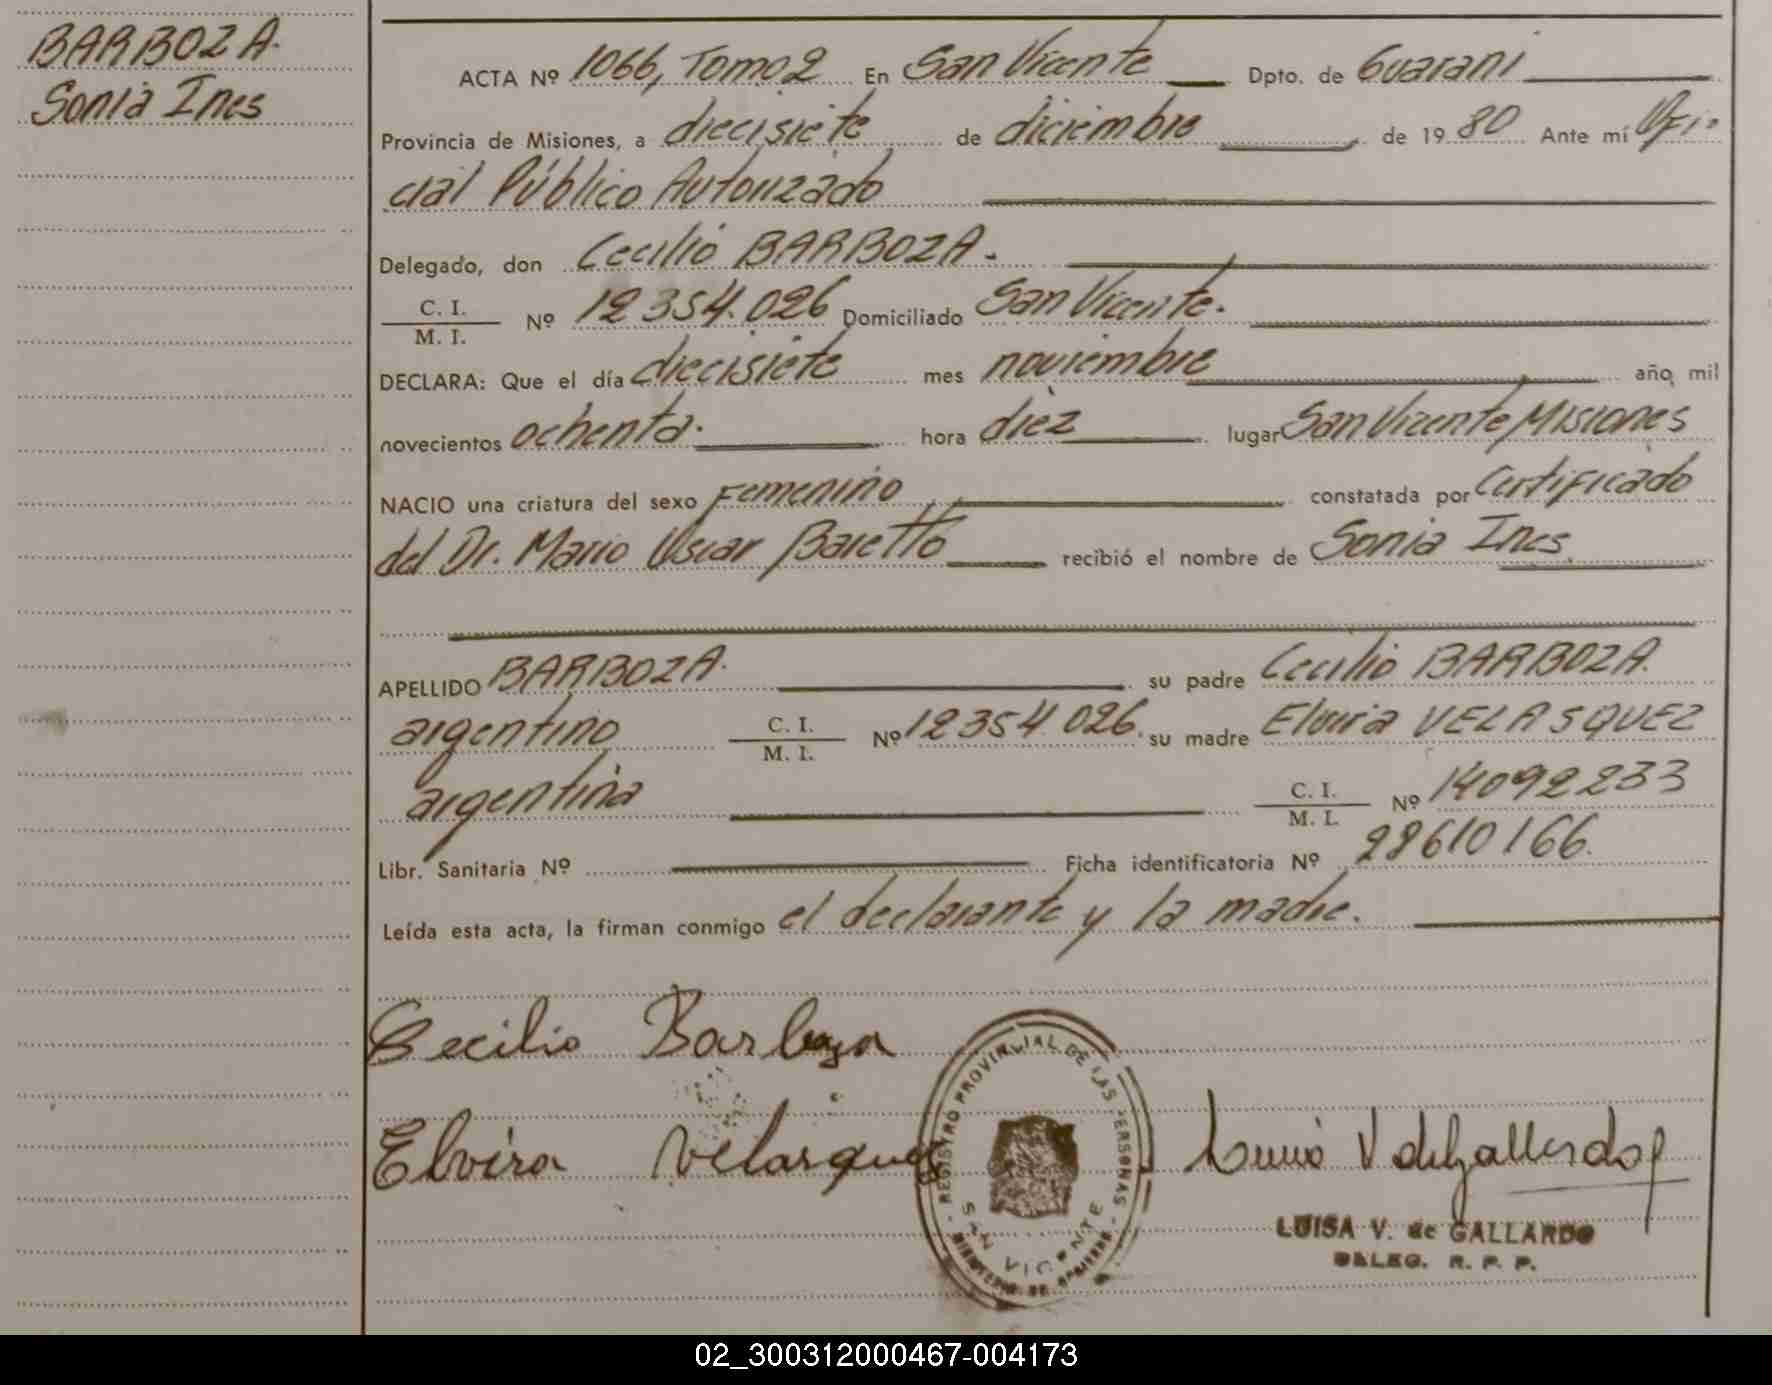 BARBOZA.
Sonia Ines
ACTA Nº 1066, Tomo 2 En San Vicente Dpto. de Guarani
Provincia de Misiones, a diecisiete de diciembre de 1980 Ante mí Ofi-
cial Público Autorizado
Delegado, don Cecilio BARBOZA.
C. I.
M. I. Nº 12354.026 Domiciliado San Vicente.
DECLARA: Que el día diecisiete mes noviembre año mil
novecientos ochenta. hora diez lugar San Vicente, Misiones
NACIO una criatura del sexo Femenino constatada por Certificado
del Dr. Mario Oscar Baretto recibió el nombre de Sonia Ines
APELLIDO BARBOZA. su padre Cecilio BARBOZA.
argentino C. I.
M. I. Nº 12354.026. su madre Elvira VELASQUEZ
argentina C. I.
M. I. Nº 14092233
Libr. Sanitaria Nº Ficha identificatoria Nº 28610166.
Leída esta acta, la firman conmigo el declarante y la madre.
Cecilio Barboza
Elvira Velasquez
REGISTRO PROVINCIAL DE LAS PERSONAS
SAN VICENTE
MINISTERIO DE GOBIERNO
LUISA V. de GALLARDO
DELEG. R. P. P.
02_300312000467-004173